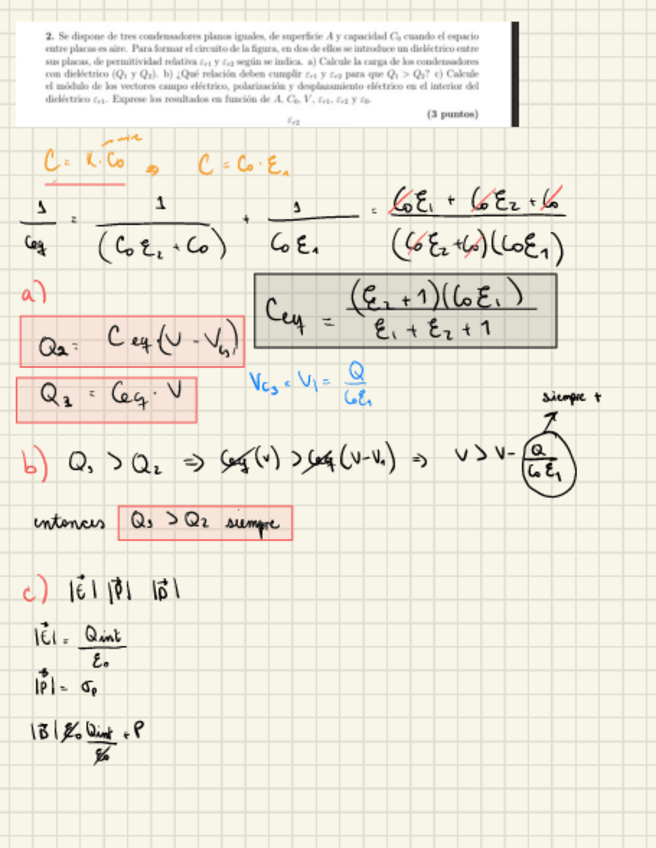 2. Se dispone de tres condensadores planos iguales, de superficie A y capacidad C₀ cuando el espacio
entre placas es aire. Para formar el circuito de la figura, en dos de ellos se introduce un dieléctrico entre
sus placas, de permitividad relativa εr1 y εr2 según se indica. a) Calcule la carga de los condensadores
con dieléctrico (Q₁ y Q₂). b) ¿Qué relación deben cumplir εr1 y εr2 para que Q₁ > Q₂? c) Calcule
el módulo de los vectores campo eléctrico, polarización y desplazamiento eléctrico en el interior del
dieléctrico εr1. Exprese los resultados en función de A, C₀, V, εr1, εr2 y ε₀.
(3 puntos)
εr2
C = K·C₀ ⇒ C = C₀·ε₁
1/Ceq = 1/(C₀ε₂ + C₀) + 1/C₀ε₁ = (C₀ε₁ + C₀ε₂ + C₀)/((C₀ε₂ + C₀)(C₀ε₁))
a)
Ceq = (ε₂ + 1)(C₀ε₁)/(ε₁ + ε₂ + 1)
Q₂ = Ceq (V - V
Q₁ = Ceq · V
= V₁ = Q/C₀ε₁
siempre +
b) Q₁ > Q₂ ⇒ Ceq (V) > Ceq (V-V₁) ⇒ V > V - Q/C₀ε₁
entonces Q₁ > Q₂ siempre
c) |E| |P| |D|
|E| = Qint/ε₀
|P| = σp
|D| ε₀ Qint/ε₀ + P